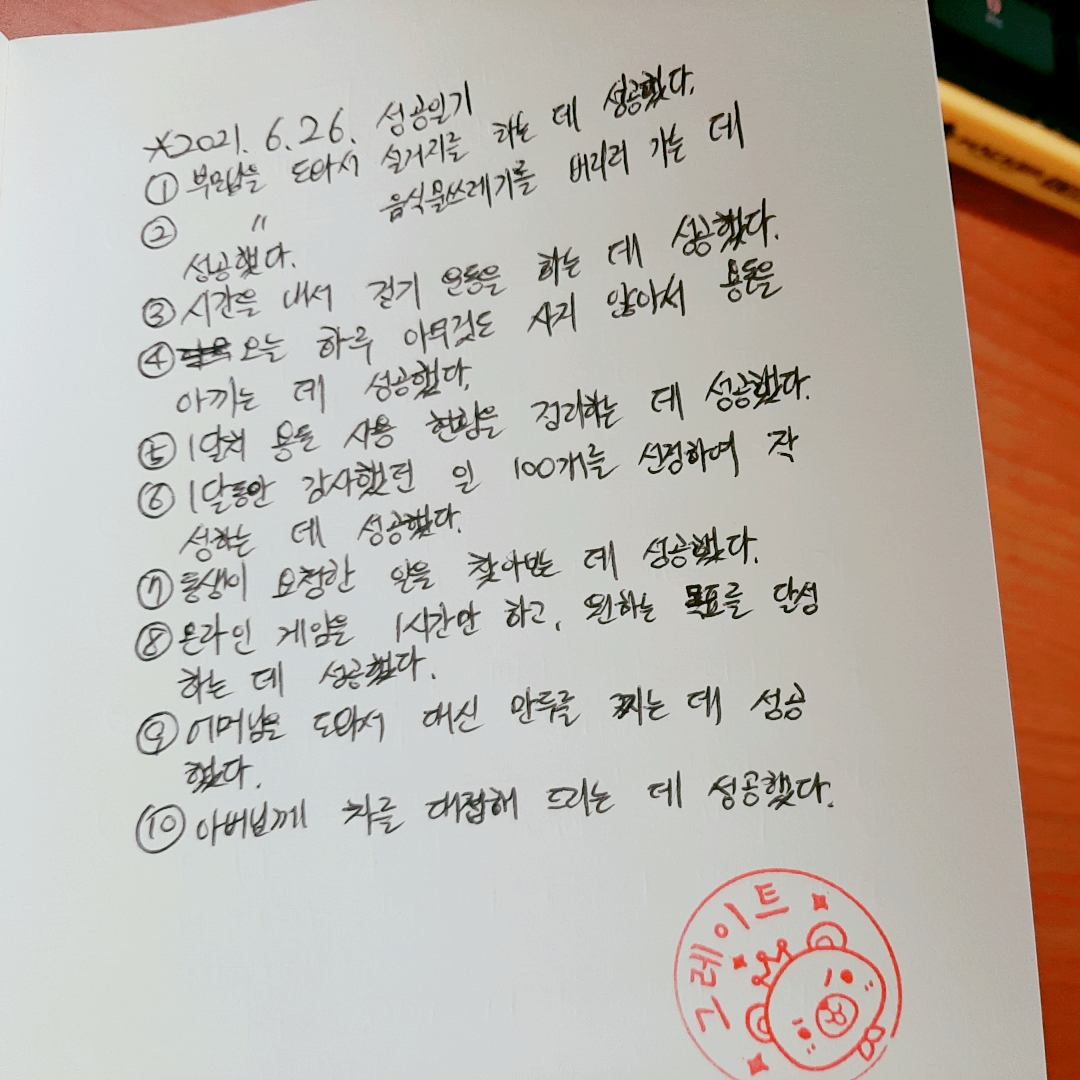 *2021. 6.26. 성공일기
① 부모님을 도와서 설거지를 하는 데 성공했다.
② 〃 음식물쓰레기를 버리러 가는 데
성공했다.
③ 시간을 내서 걷기 운동을 하는 데 성공했다.
④ 오늘 하루 아무것도 사지 않아서 용돈을
아끼는 데 성공했다.
⑤ 1달치 용돈 사용 현황을 정리하는 데 성공했다.
⑥ 1달동안 감사했던 일 100개를 선정하여 작
성하는 데 성공했다.
⑦ 동생이 요청한 일을 찾아보는 데 성공했다.
⑧ 온라인 게임을 1시간만 하고, 원하는 목표를 달성
하는 데 성공했다.
⑨ 어머님을 도와서 대신 만두를 찌는 데 성공
했다.
⑩ 아버님께 차를 대접해 드리는 데 성공했다.
그레이트